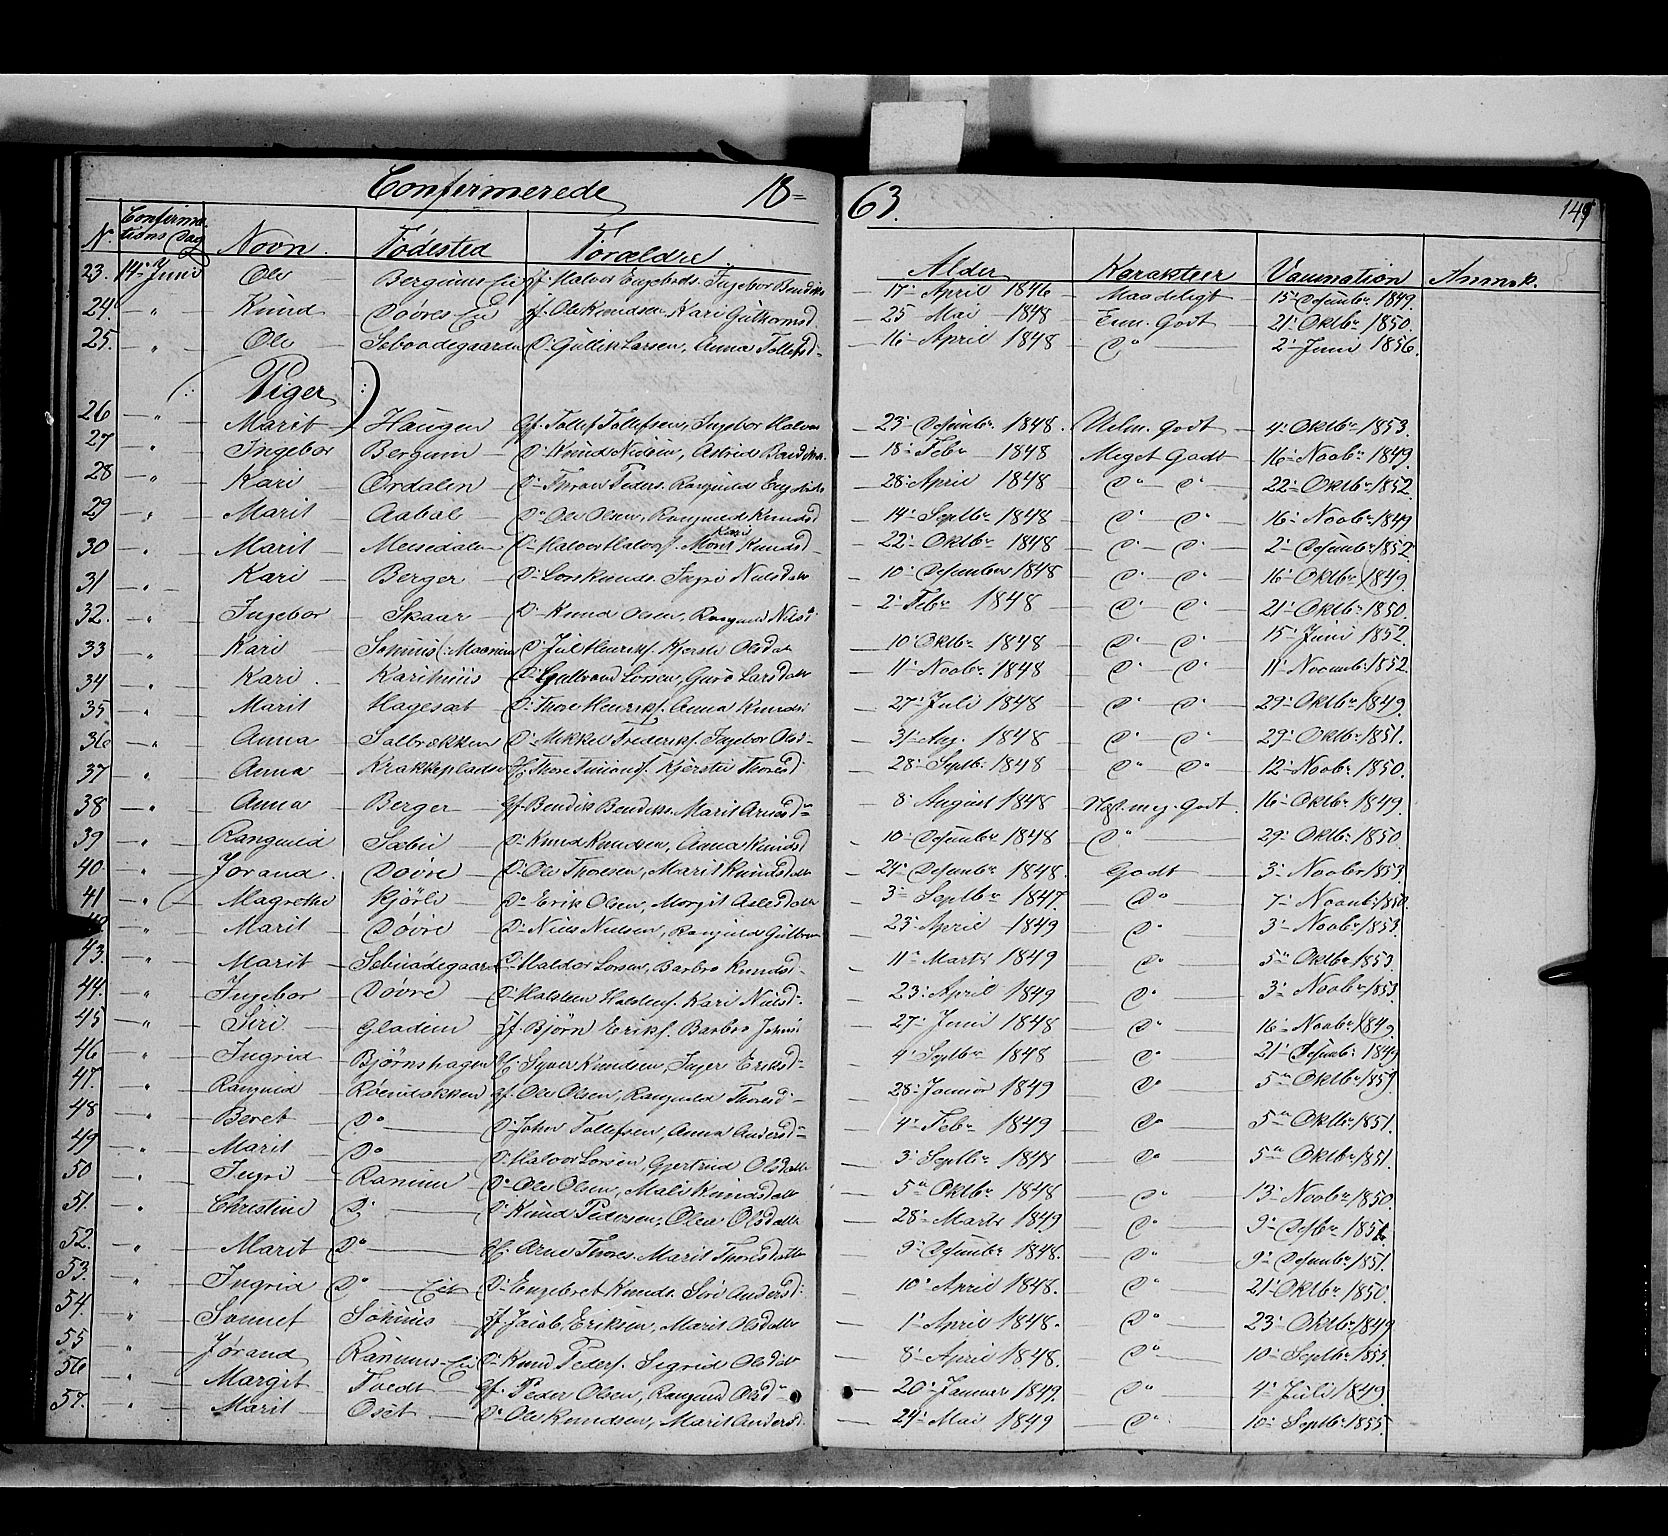 Confirmerede 18= 63. 149
No. Confirmationsdag Navn. Fødested Forældre. Alder Karakteer Vaccination Anmrk.
23. 14de Juni Ole Bergums Eie gf. Halvor Engebrets. Ingebor Bendiks 17. April 1846 Maadeligt 15. Desembr 1849.
24. " Knud Døvres Eie gf. Ole Knudsen, Kari Guthormsd 25 Mai 1848 Tem. Godt 21. Oktbr 1850.
25. " Ole Seboadegaarden Do Gullik Larsen, Anna Tollefsd 16 April 1848 Do 2. Juni 1856.
(: Piger :)
26 " Marit Haugen gf. Tollef Tollefsen, Ingebor Halvor 23. Desembr 1848. Udm. Godt 4. Oktbr 1853.
27 " Ingebor Bergum Do Knud Nilsen, Astrid Bendiks. 18. Febr 1848 Meget Godt 16. Novbr 1849.
28 " Kari Ørdalen Do Peders. Ranguild Engebrets 28. April 1848 Do Do 22. Oktbr 1852.
29 " Marit Aabal Do Ole Olsen, Ranguild Knudsd 14. Septbr 1848 Do Do 16. Novbr 1849
30 " Marit Meisedalen Do Halvor Halvors. Marit Kari Knudsd 22. Oktbr 1848 Do Do 2. Desembr 1852.
31 " Kari Berger Do Lars Knuds. Ingri Nilsdatter 10. Desember 1848 Do Do 16. Oktbr 1849.
32. " Ingebor Skaar Do Knud Olsen, Ranguild Nilsd 2. Febr 1848 Do Do 21. Oktbr 1850.
33 " Kari Do Juul Henriks. Kjersti Olsdat 10. Oktbr 1848 Do Do 15. Juni 1852.
34 " Kari. Karihuus Do Gulbrand Larsen, Guro Larsdatter 11. Novbr 1848 Do Do 11. Novemb. 1852.
35 " Marit Hagesæt Do Thore Henriks. Anna Knuds. 27. Juli 1848 Do Do 29. Oktbr 1849.
36 " Anna Solbrækken Do Mikkel Frederiks. Ingebor Olsd 31. Aug. 1848 Do Do 29. Oktbr 1851.
37 " Anna Krakkeplads gf. Thore Simons. Kjersti Thoresd 28. Septb. 1848 Do Do 12. Novbr 1850.
38 " Anna Berger gf. Bendik Bendiks. Marit Arnesd 8. August 1848 Næst. meg. Godt. 16. Oktbr 1849.
39 " Ranguild Sæbu Do Knud Knudsen, Anna Knudsd 10. Desembr 1848 Do 29. Oktbr 1850.
40. " Jørand. Døvre Do Ole Thoresen, Marit Knudsdatter 24. Desembr 1848. Godt 3. Novbr 1853.
41 " Magrethe Kjørli Do Erik Olsen, Margit Axlesdatter 3. Septbr 1847. Do 7. Novmb. 1850.
42 " Marit Døvre Do Niels Nielsen, Ranguild Gulbran 23. April 1849 Do 3. Novbr 1853.
43. " Marit Sebuødegaarden Do Haldor Larsen, Barbro Knudsd 11. Marts 1849 Do 5te Oktbr 1853.
44. " Ingebor Døvre Do Halsten Halstens. Kari Nilsd. 23. April 1849 Do 3. Novbr 1853.
45 " Siri. Gladim gf. Bjørn Eriks. Barbro Johns 27. Juni 1848 Do 16. Novbr 1849.
46 " Ingrid Bjørnshagen gf. Syver Knudsen, Inger Eriksd. 4. Septbr 1848 Do 21. Desemb. 1849
47. " Ranguild gf. Ole Olsen, Ranguild Thoresd. 28. Januar 1849 Do 5te Oktbr 1859.
48 " Beret Do Do John Tollefsen, Anna Andersd 4. Febr 1849 Do 5te Oktbr 1851.
49 " Marit Do Do Halvor Larsen, Gjertrud Olsdatter 3. Septbr 1848 Do 5te Oktbr 1851.
50 " Ingri Ranum Do Ole Olsen, Mali Knudsdatter 5te Oktbr 1848 Do 13. Novbr 1850.
51. " Christine Do Do Knud Pedersen, Olea Olsdatter 28. Marts 1849 Do 9. Desbr
52. " Marit Do gf. Arne Thores. Marit Thoresdatter 9. Desembr 1848. Do 9. Desembr 1851.
53. " Ingrid Do Eie Do Engebret Knuds. Siri Andersd. 10. April 1848. Do 21. Oktbr 1850.
54. " Sonnef gf. Jacob Eriksen, Marit Olsdatter 1. April 1848. Do 23. Oktbr 1849
55 " Jørand Ranums Eie Do Knud Peders. Sigrid Olsdat 8. April 1848. Do 10. Septbr 1855.
56 " Margit Tvedt gf. Peder Olsen, Ranguild Olsd 20. Januar 1849. Do 4. Juli 1849.
57. " Marit Oset Do Ole Knudsen, Marit Andersd. 24. Mai 1849 Do 10. Septbr 1855.